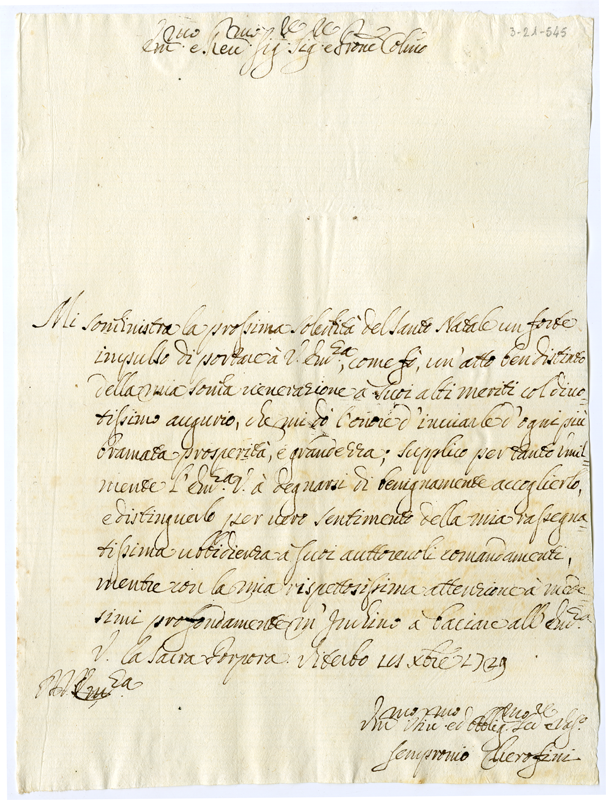 3-21-545
Em.mo e Rev.mo Sig.re Sig.re e Prone Colmo
Mi somministra la prossima solennità del Santo Natale un forte
impulso di portare à V. Em.za, come fò, un'atto ben distinto
della mia somma venerazione à suoi alti meriti col divo-
tissimo augurio, che mi dò l'onore d'inviarle d'ogni più
bramata prosperità, e grandezza; supplico per tanto umil=
mente l'Em.za V. à degnarsi di benignamente accoglierlo,
e distinguerlo per vero sentimento della mia rassegna=
tissima ubbidienza à suoi auttorevoli comandamenti,
mentre con la mia rispettosissima attenzione à mede
simi profondamente m'inchino à baciare all'Em.za
V. la Sacra Porpora. Viterbo li Xbre 1729
V. Em.za
Um.mo Dev.mo ed Obblig.mo Ser.re
Sempronio Cherofini